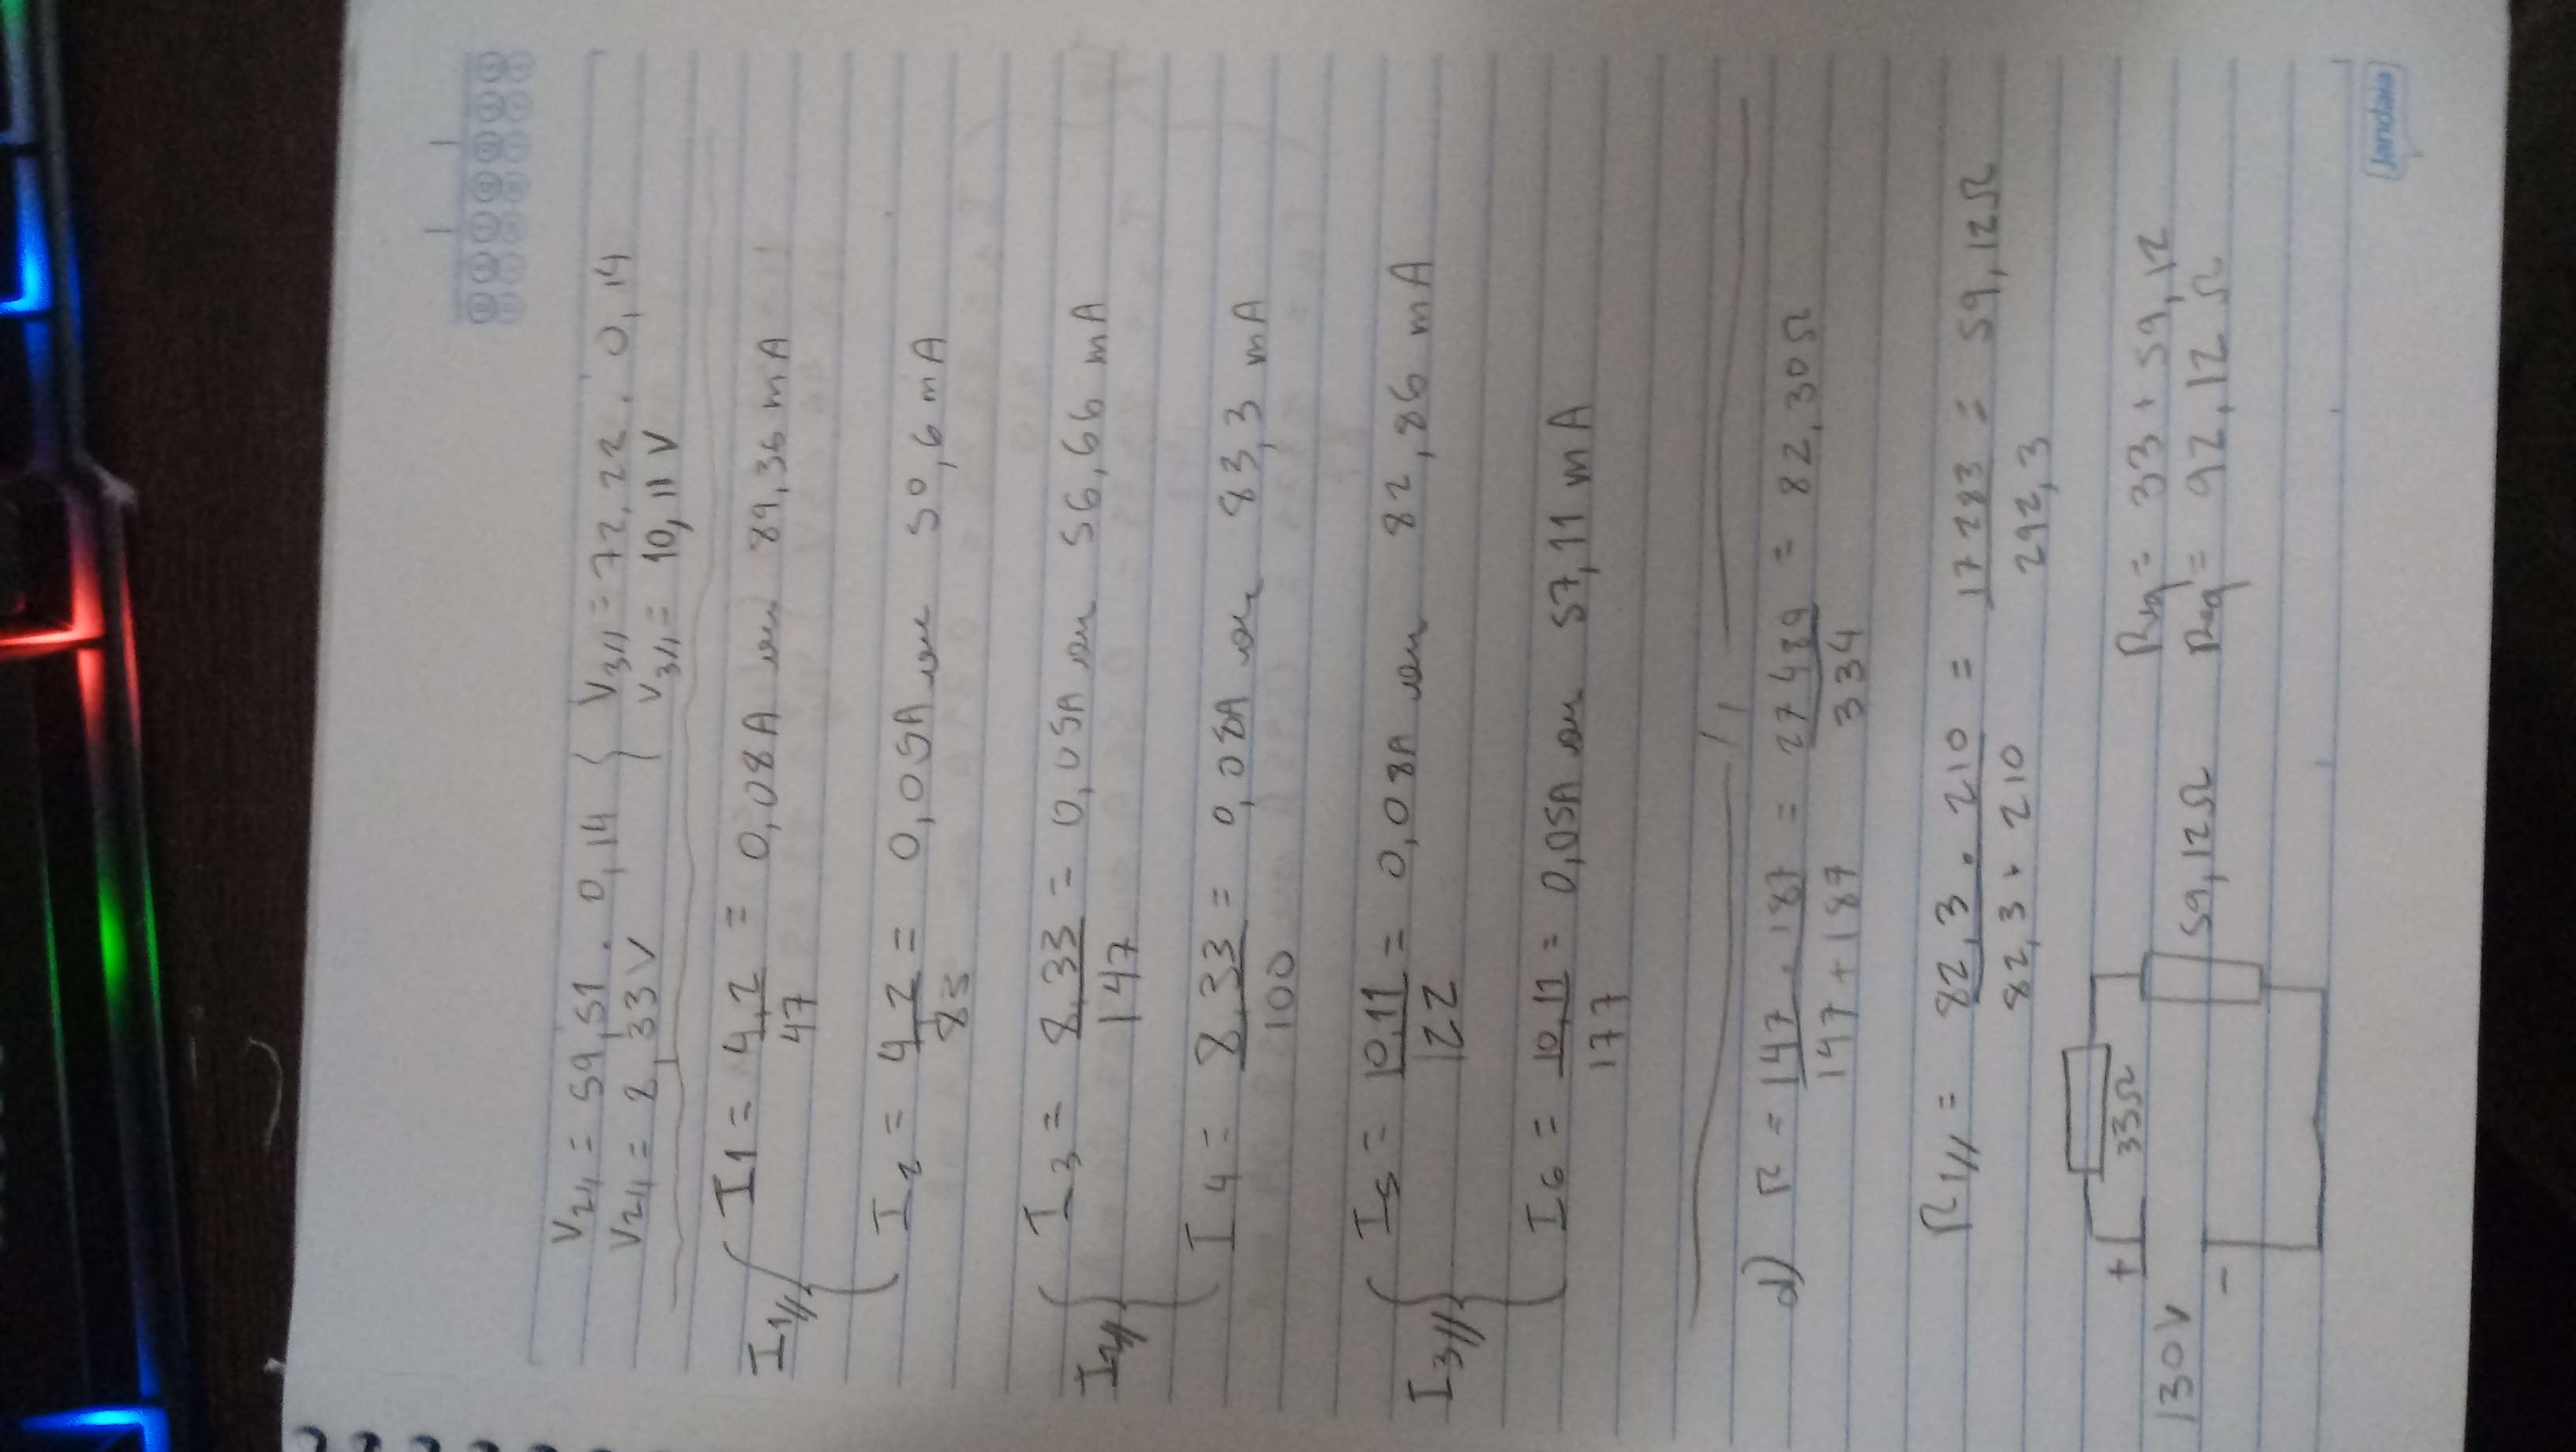 V2// = 59,51 . 0,14 { V3// = 72,22 . 0,14
V2// = 8,33V V3// = 10,11 V
I1// { I1 = 4,2 / 47 = 0,08A ou 89,36 mA
I2 = 4,2 / 83 = 0,05A ou 50,6 mA
I2// { I3 = 8,33 / 147 = 0,05A ou 56,66 mA
I4 = 8,33 / 100 = 0,08A ou 83,3 mA
I3// { I5 = 10,11 / 122 = 0,08A ou 82,86 mA
I6 = 10,11 / 177 = 0,05A ou 57,11 mA
d) R = 147 . 187 / 147 + 187 = 27489 / 334 = 82,30Ω
R1// = 82,3 . 210 / 82,3 + 210 = 17283 / 292,3 = 59,12Ω
+ 33Ω
130V 59,12Ω
-
Req = 33 + 59,12
Req = 92,12 Ω
Jandaia